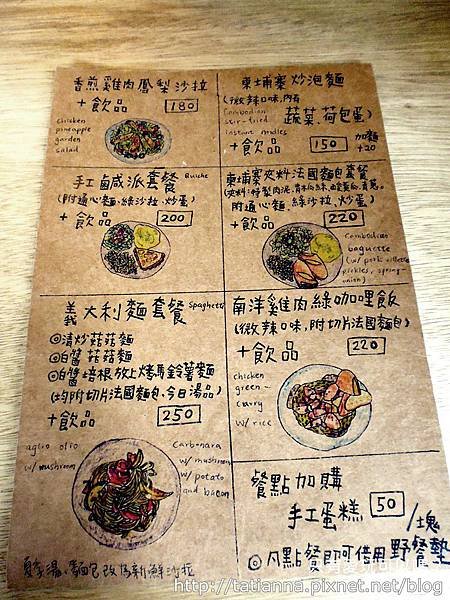 香煎雞肉鳳梨沙拉
+飲品 180
chicken
pineapple
garden
salad
柬埔寨炒泡麵
(微辣口味,內有
蔬菜.荷包蛋)
Cambodian
stir-fried
instant noodles
+飲品 150
加麵
+20
手工鹹派套餐 Quiche
(附通心麵.綠沙拉.炒蛋)
+飲品
200
柬埔寨夾料法國麵包套餐
附通心麵.綠沙拉.炒蛋)
+飲品 220
Cambodian
baguette
(w/ pork rillette
pickles, spring-
onion)
義大利麵套餐 Spaghetti
◎清炒菇菇麵
◎白醬菇菇麵
◎白醬培根放上烤馬鈴薯麵
(均附切片法國麵包、今日湯品)
+飲品 250
aglio olio
w/ mushroom
Carbonara
w/ mushroom
w/ potato
and bacon
南洋雞肉綠咖哩飯
(微辣口味,附切片法國麵包)
+飲品 220
chicken
green-
curry
w/ rice
餐點加購
手工蛋糕 50/塊
◎凡點餐即可借用野餐墊
夏季湯、麵包改為新鮮沙拉
http://tatianna.pixnet.net/blog